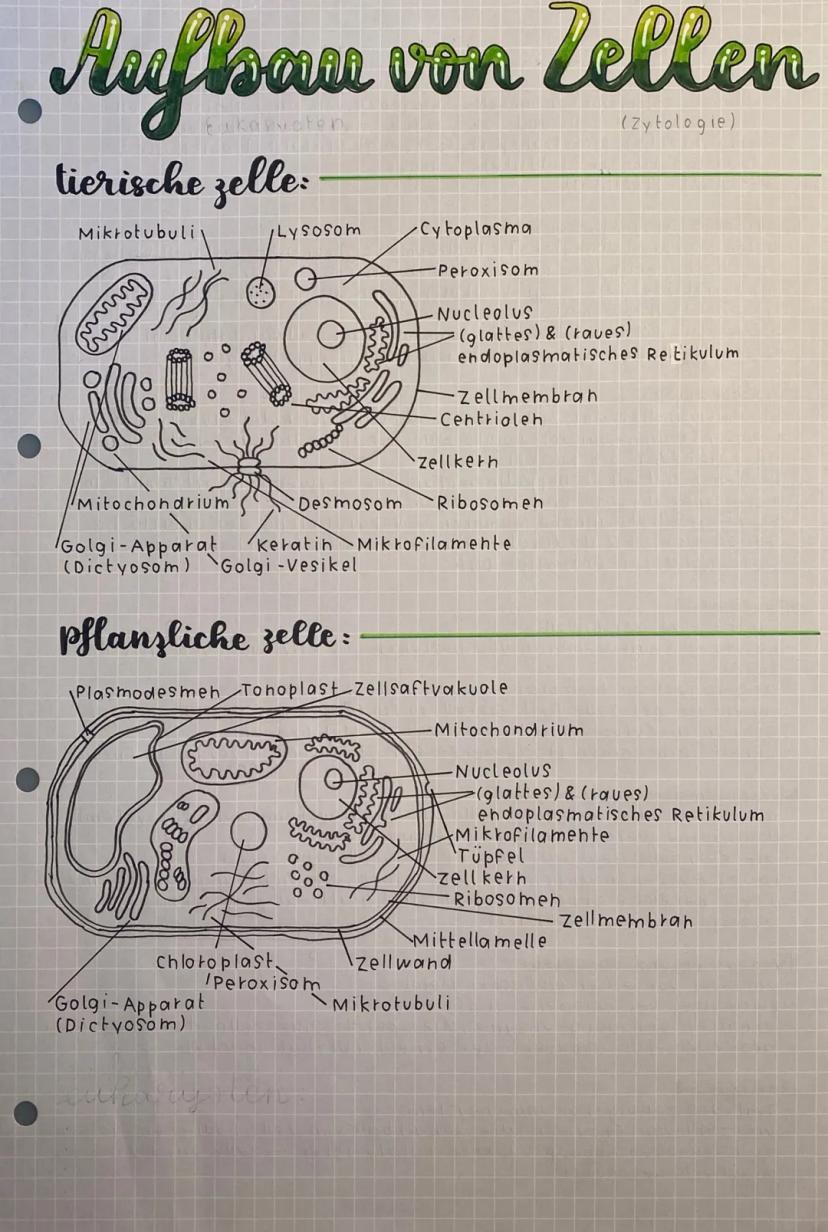 Aufbau von Zellen
Eukaryoten (Zytologie)
tierische zelle:
Mikrotubuli Lysosom Cytoplasma
Peroxisom
Nucleolus
(glattes) & (raues)
endoplasmatisches Retikulum
Zellmembran
Centriolen
Zellkern
Mitochondrium Desmosom Ribosomen
Golgi-Apparat Keratin Mikrofilamente
(Dictyosom) Golgi-Vesikel
pflanzliche zelle:
Plasmodesmen Tonoplast Zellsaftvakuole
Mitochondrium
Nucleolus
(glattes) & (raues)
endoplasmatisches Retikulum
Mikrofilamente
Tüpfel
Zellkern
Ribosomen
Zellmembran
Mittellamelle
Chloroplast Zellwand
Peroxisom
Golgi-Apparat Mikrotubuli
(Dictyosom)
eukaryoten: